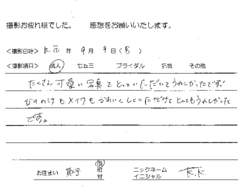 撮影お疲れ様でした。 感想をお願いいたします。
<撮影日時> R.元 年 9 月 9 日(月)
<撮影項目> 成人 七五三 ブライダル 記念 その他
たくさん可愛い写真をとっていただいてうれしかったです!
もかわいくしていただけてとってもうれしかった
です。
お住まい 市 町 村 ニックネーム イニシャル K.K